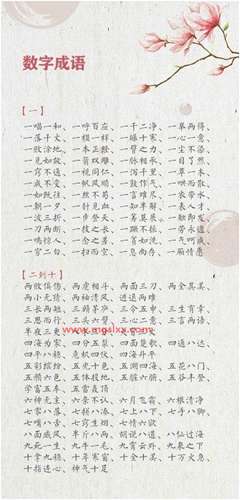 数字成语
【一】
一唱一和、一呼百应、一干二净、一举两得、
一落千丈、一模一样、一曝十寒、一心一意、
一败涂地、一本正经、一臂之力、一尘不染、
一见如故、一箭双雕、一脉相承、一目了然、
一窍不通、一视同仁、一泻千里、一草一木、
一成不变、一帆风顺、一鼓作气、一哄而散、
一如既往、一丝不苟、一言难尽、一衣带水、
一朝一夕、一针见血、一知半解、一表人才、
一波三折、一步登天、一筹莫展、一触即发、
一刀两断、一技之长、一蹶不振、一劳永逸、
一鸣惊人、一念之差、一贫如洗、一气呵成、
一窝二白、一扫而空、一息尚存、一厢情愿
【二到十】
两败俱伤、两虎相斗、两面三刀、两全其美、
两小无猜、两袖清风、进退两难
三长两短、三顾茅庐、三令五申、三生有幸、
三思而行、三头六臂、三心二意、三言两语、
半夜三更
www.mgslxx.com
四海为家、四分五裂、四面楚歌、四通八达、
四平八稳、危机四伏、四海升平
五彩缤纷、五光十色、五湖四海、五花八门、
五颜六色、五体投地、五脏六腑、五谷丰登、
学富五车
六神无主、六亲不认、六月飞霜、六根清净
七零八落、七拼八凑、七上八下、七手八脚、
七嘴八舌、七窍生烟、七情六欲
八面威风、半斤八两、胡说八道、八仙过海
九死一生、九牛一毛、九霄云外、九泉之下
十拿九稳、十年寒窗、十全十美、十万火急、
十指连心、神气十足